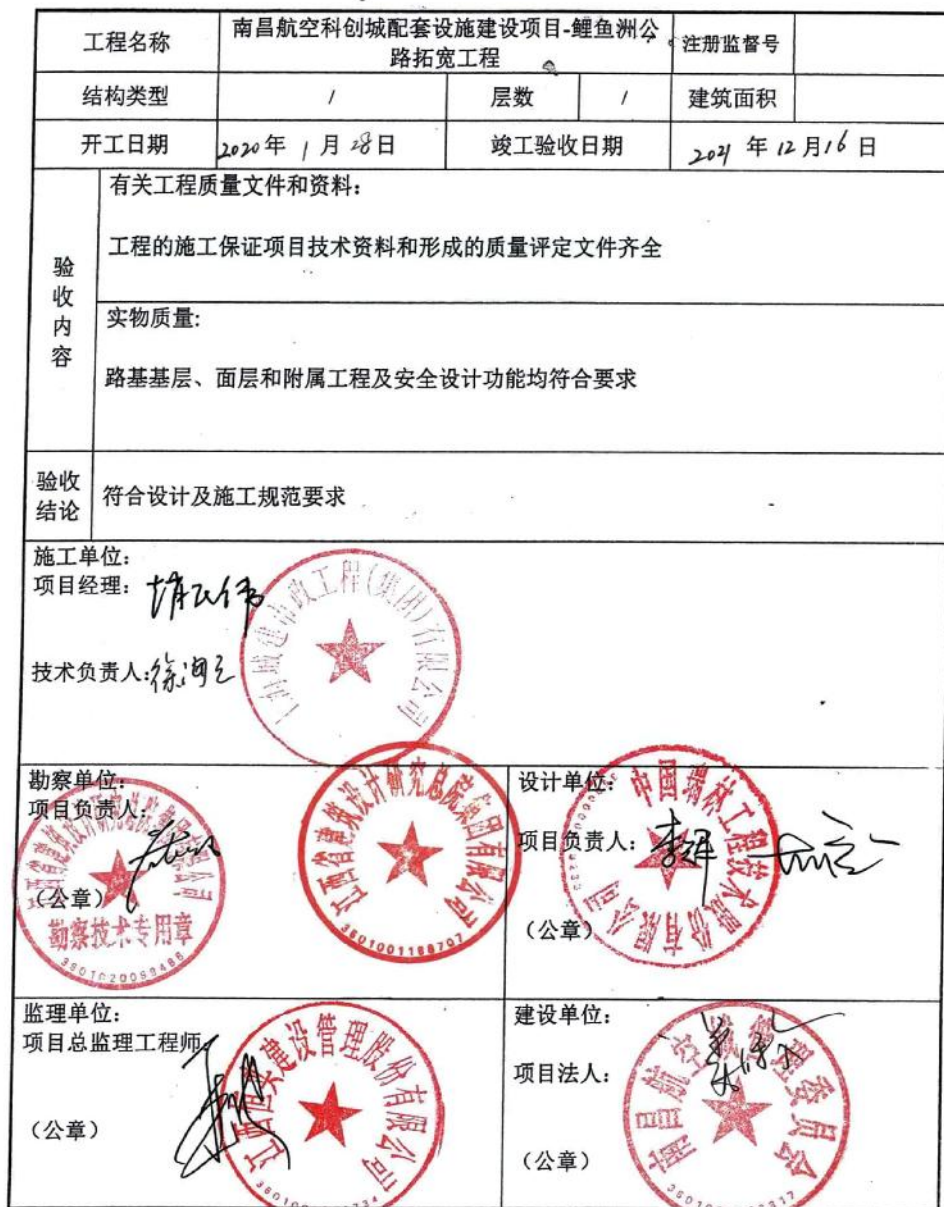 工程名称
南昌航空科创城配套设施建设项目-鲤鱼洲公
路拓宽工程
注册监督号
结构类型
/
层数
/
建筑面积
开工日期
2020年 1月28日
竣工验收日期
2021年12月16日
验收内容
有关工程质量文件和资料：
工程的施工保证项目技术资料和形成的质量评定文件齐全
实物质量:
路基基层、面层和附属工程及安全设计功能均符合要求
验收
结论
符合设计及施工规范要求
施工单位：
项目经理：
上海城建市政工程(集团)有限公司
技术负责人:徐海
勘察单位：
项目负责人：
（公章）
勘察技术专用章
江西省建筑设计研究总院集团有限公司
3601001188707
设计单位：
项目负责人：李
（公章）
中国瑞林工程技术股份有限公司
监理单位：
项目总监理工程师：
（公章）
建设管理股份有限公司
建设单位：
项目法人：
（公章）
南昌航空城管理委员会